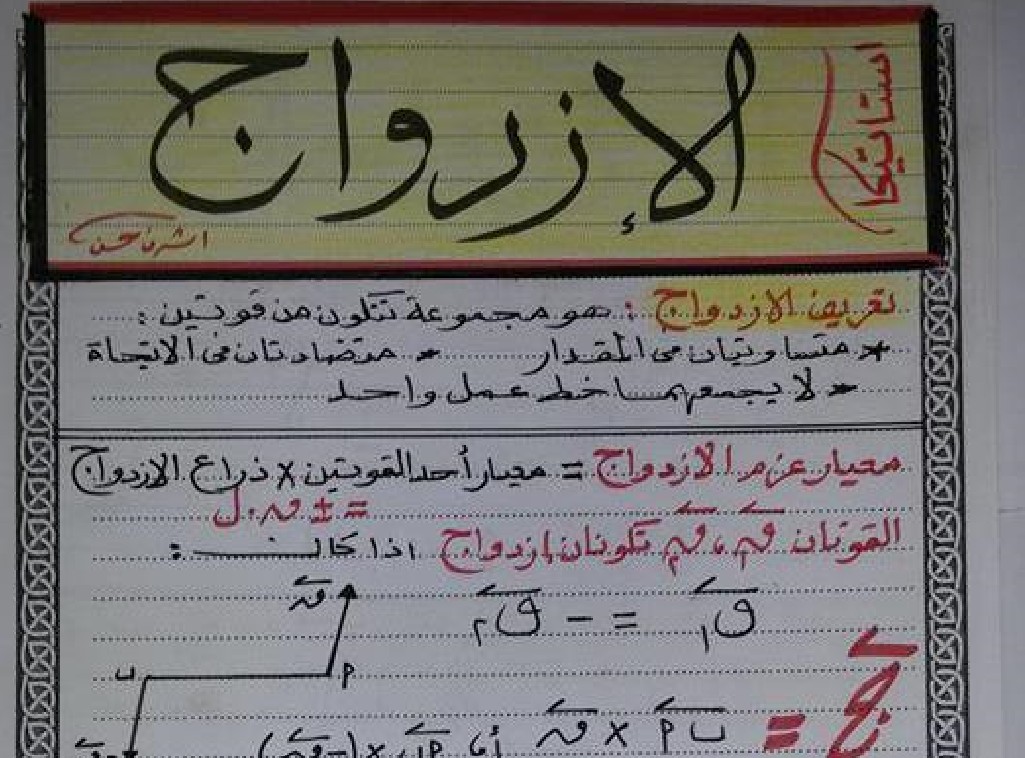 استاتيكا
الازدواج
اشرف حسن
تعريف الازدواج : هو مجموعة تتكون من قوتين :
* متساويتان فى المقدار * متضادتان فى الاتجاة
* لا يجمعهما خط عمل واحد
معيار عزم الازدواج = معيار أحد القوتين × ذراع الازدواج
= ± ق . ل
القوتان ق١ ، ق٢ تكونان ازدواج اذا كانت :
ق١ = - ق٢
ق
ب
أ
ج = ب أ × ق أ، أ ب × (-ق)
-ق